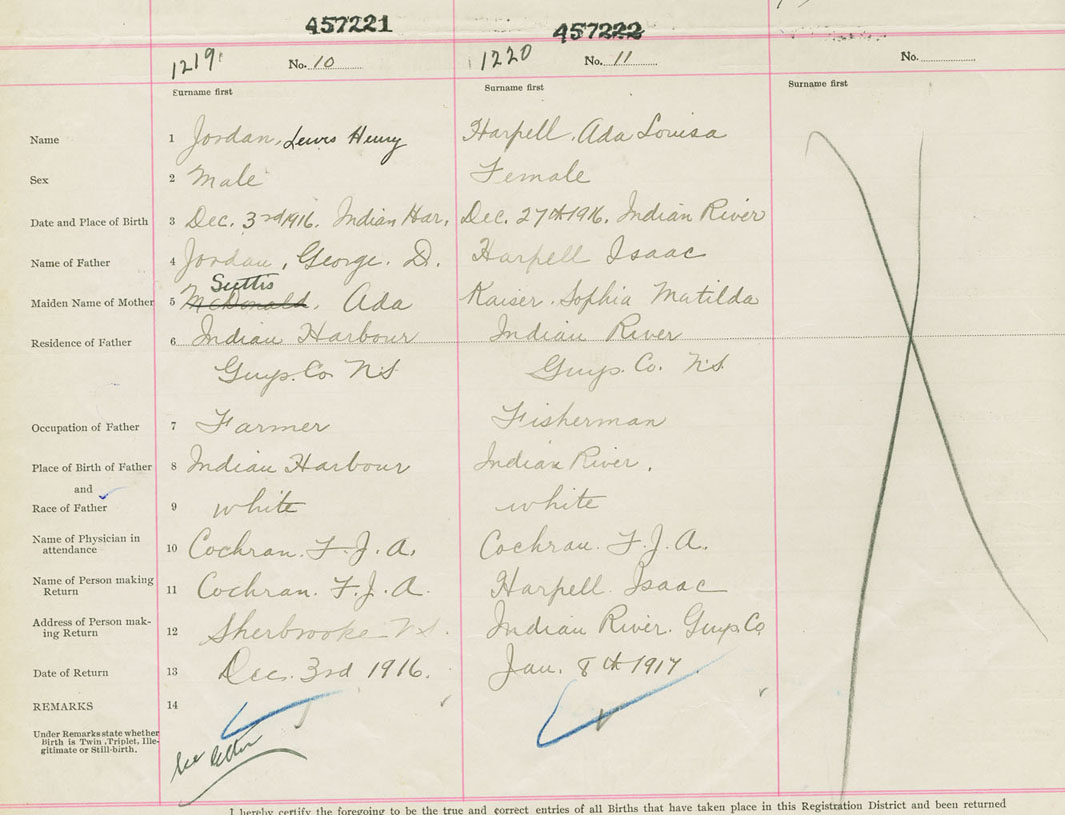 457221 457222
1219 No. 10 1220 No. 11 No.
Surname first Surname first Surname first
Name 1 Jordan, Lewis Henry Harpell. Ada Louisa
Sex 2 Male Female
Date and Place of Birth 3 Dec. 3rd 1916. Indian Har. Dec. 27th 1916. Indian River
Name of Father 4 Jordan, George. D. Harpell Isaac
Suttis
Maiden Name of Mother 5 McDonald. Ada Kaiser. Sophia Matilda
Residence of Father 6 Indian Harbour Indian River
Guys. Co. N.S Guys. Co. N.S
Occupation of Father 7 Farmer Fisherman
Place of Birth of Father 8 Indian Harbour Indian River.
and
Race of Father 9 white white
Name of Physician in
attendance 10 Cochran. F. J. A. Cochran. F. J. A.
Name of Person making
Return 11 Cochran. F. J. A. Harpell. Isaac
Address of Person mak-
ing Return 12 Sherbrooke N.S. Indian River. Guys Co
Date of Return 13 Dec. 3rd 1916. Jan. 8th 1917
REMARKS 14
Under Remarks state whether
Birth is Twin, Triplet, Ille-
gitimate or Still-birth.
see letter
I hereby certify the foregoing to be the true and correct entries of all Births that have taken place in this Registration District and been returned